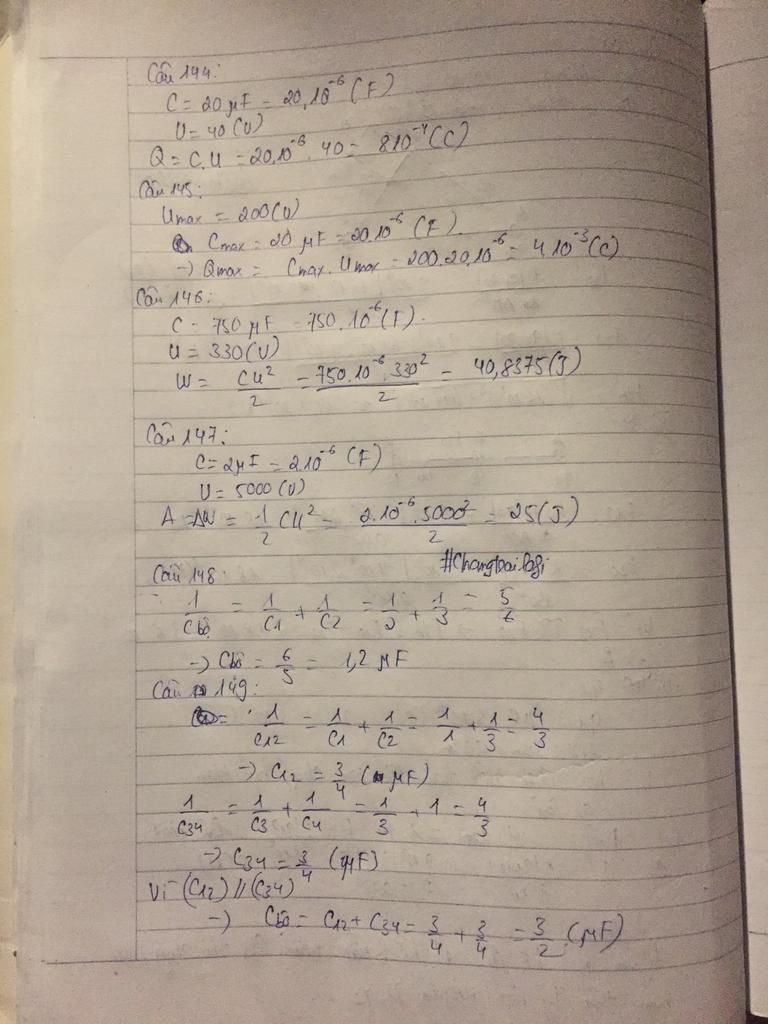 Câu 144:
C = 20 μF = 20.10⁻⁶ (F)
U = 40 (V)
Q = C.U = 20.10⁻⁶ . 40 = 8.10⁻⁴ (C)
Câu 145:
Umax = 200 (V)
Cmax = 20 μF = 20.10⁻⁶ (F).
→ Qmax = Cmax. Umax = 200.20.10⁻⁶ = 4.10⁻³ (C)
Câu 146:
C = 750 μF = 750.10⁻⁶ (F).
U = 330 (V)
W = CU²/2 = 750.10⁻⁶.330²/2 = 40,8375 (J)
Câu 147:
C = 2μF = 2.10⁻⁶ (F)
U = 5000 (V)
A = ΔW = 1/2 CU² = 2.10⁻⁶.5000²/2 = 25 (J)
Câu 148:
1/Cbộ = 1/C1 + 1/C2 = 1/2 + 1/3 = 5/6
→ Cbộ = 6/5 = 1,2 μF
Câu 149:
1/C12 = 1/C1 + 1/C2 = 1/1 + 1/3 = 4/3
→ C12 = 3/4 (μF)
1/C34 = 1/C3 + 1/C4 = 1/3 + 1 = 4/3
→ C34 = 3/4 (μF)
Vì (C12) // (C34)
→ Cbộ = C12 + C34 = 3/4 + 3/4 = 3/2 (μF)